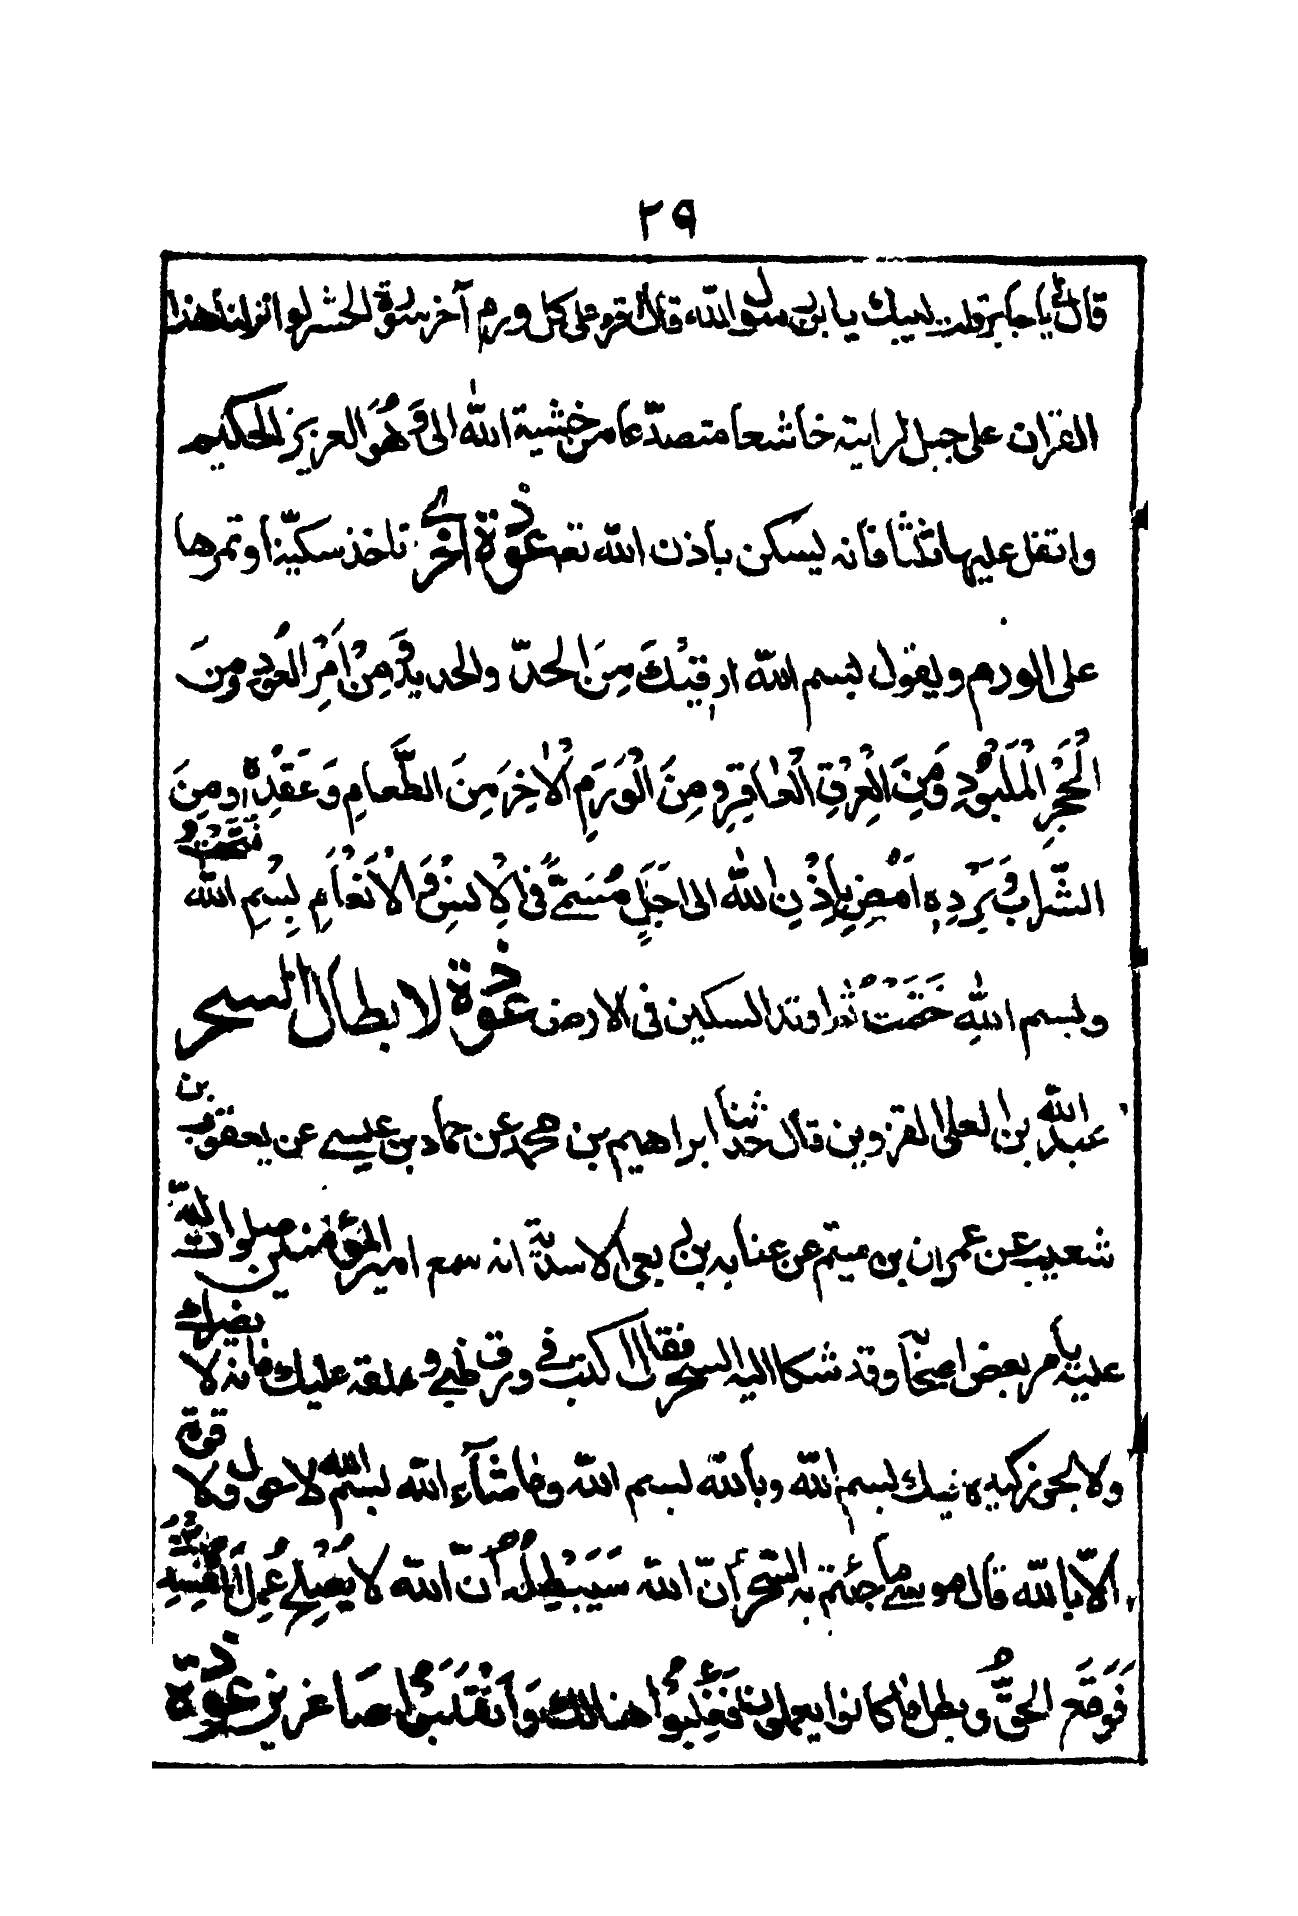 ٢٩
قال يا جابر قلت لبيك يا بن رسول الله، قال اقرء على كل ورم آخر سورة الحشر لو انزلنا هذا
القران على جبل لرايته خاشعا متصدّعا من خشية الله الى وَهُوَ العزيز الحكيم
واتفل عليها ثلثا فانه يسكن باذن الله تعه عوذة اخرى تاخذ سكينة او تمرها
على الورم ويقول بسم الله ارقيْكَ مِنَ الحدّ والحديد وَمِنْ اَمْرِ العُود وَمِنَ
الْحَجَرِ الْمَلْبُودِ وَمِنَ الْعِرْقِ الْعاقِرِ وَمِنَ الْوَرَمِ الْاٰخِرَ مِنَ الطَّعامِ وَعَقَدِهٖ وَمِنَ
الشَّرابِ بَرْدِهٖ امْضِ بِاِذْنِ اللهِ الى اَجَلٍ مُسَمًّى فى الْاِنسِ وَالْاَنْعامِ بِسْمِ الله فَتَحْتُ
وبسم اللهِ خَتَمْتُ ثم اوتد السكين فى الارض عوذة لابطال السحر
عبد الله بن العلى القزوينى قال حدثنا ابراهيم بن محمد عن حماد بن عيسى عن يعقوب بن
شعيب عن عمران بن ميثم عن عبايه بن ربعى الاسدى انه سمع امير المؤمنين صلوات الله
عليه يأمر بعض اصحابه وقد شكا اليه السحر فقال اكتب فى ورق ظبى وعلقه عليك فانه لا يضرك
ولا يجوز كيده فيك بسم الله وبالله بسم الله وما شآء الله بسم الله لا حول ولا قوة
الّا بالله قال موسى ما جئتم به السّحر اِنّ الله سَيُبْطِلُهُ اِنّ الله لا يُصْلِحُ عَمَلَ الْمُفْسِدِينَ
فَوَقَعَ الحقُّ وبطل ما كانوا يعملون فَغُلِبُوا هنالك وَانْقَلَبُوا صاغرين عوذة